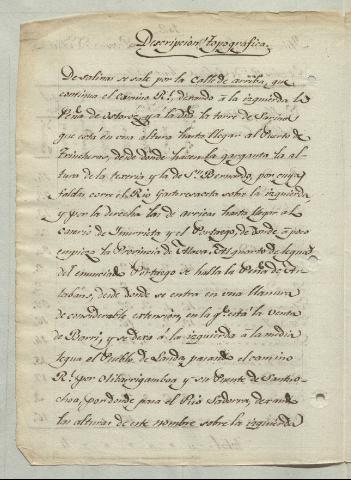 Descripcion Topografica.
De salinas se sale por la Calle de arriba, que
continua el camino R.l dexando â la izquierda la
Peña de y â la dra la torre de
que está en una altura hasta llegar al Puerto de
Trincheras, desde donde hacen la garganta la al-
tura de la y la de S.n Bernardo, por cuya
faldas corre el Rio sobre la izquierda
y por la derecha las de arricas hasta llegar al
caserio de y el Portazgo, de donde â poco
empieza la Provincia de Alava. A un quarto de legua
del enunciado Portazgo se halla la Peña de Ar-
laban, desde donde se entra en una llanura
de considerable extension, en la q.e está la Venta
de Barri, y se dexa â la izquierda â la media
legua el Pueblo de Landa, pasando el camino
R.l por Ullibarrigamboa y su Puente de Santio-
choa, por donde pasa el Rio Sadorra, dexando
las alturas de este nombre sobre la izquierda